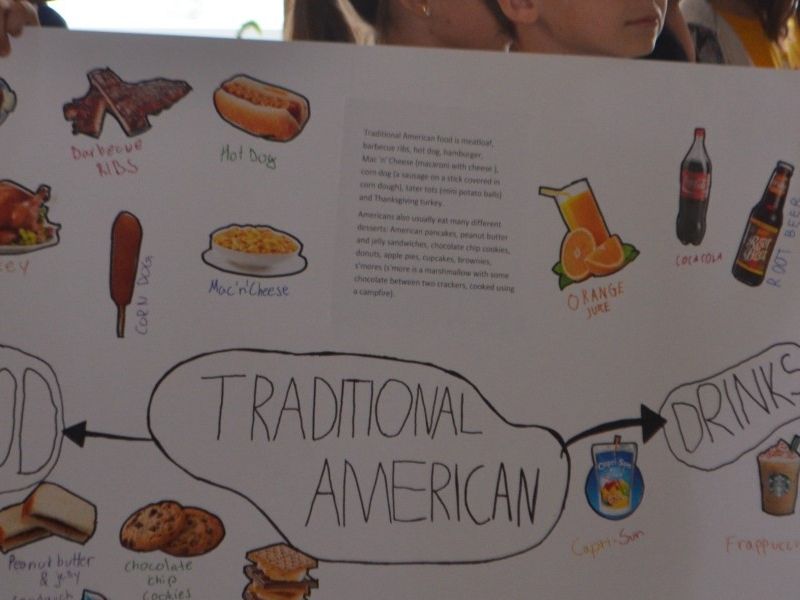 Barbecue
RIBS
Hot Dog
Traditional American food is meatloaf,
barbecue ribs, hot dog, hamburger,
Mac 'n' Cheese (macaroni with cheese ),
corn dog (a sausage on a stick covered in
corn dough), tater tots (mini potato balls)
and Thanksgiving turkey.
Americans also usually eat many different
desserts: American pancakes, peanut butter
and jelly sandwiches, chocolate chip cookies,
donuts, apple pies, cupcakes, brownies,
s'mores (s'more is a marshmallow with some
chocolate between two crackers, cooked using
a campfire).
KEY
CORN DOG
Mac'n'Cheese
ORANGE
JUKE
COCA COLA
ROOT BEER
OOD
TRADITIONAL
AMERICAN
DRINKS
Capri-Sun
Capri-Sun
Frappucc
Peanut butter
& jelly
sandwich
chocolate
chip
cookies